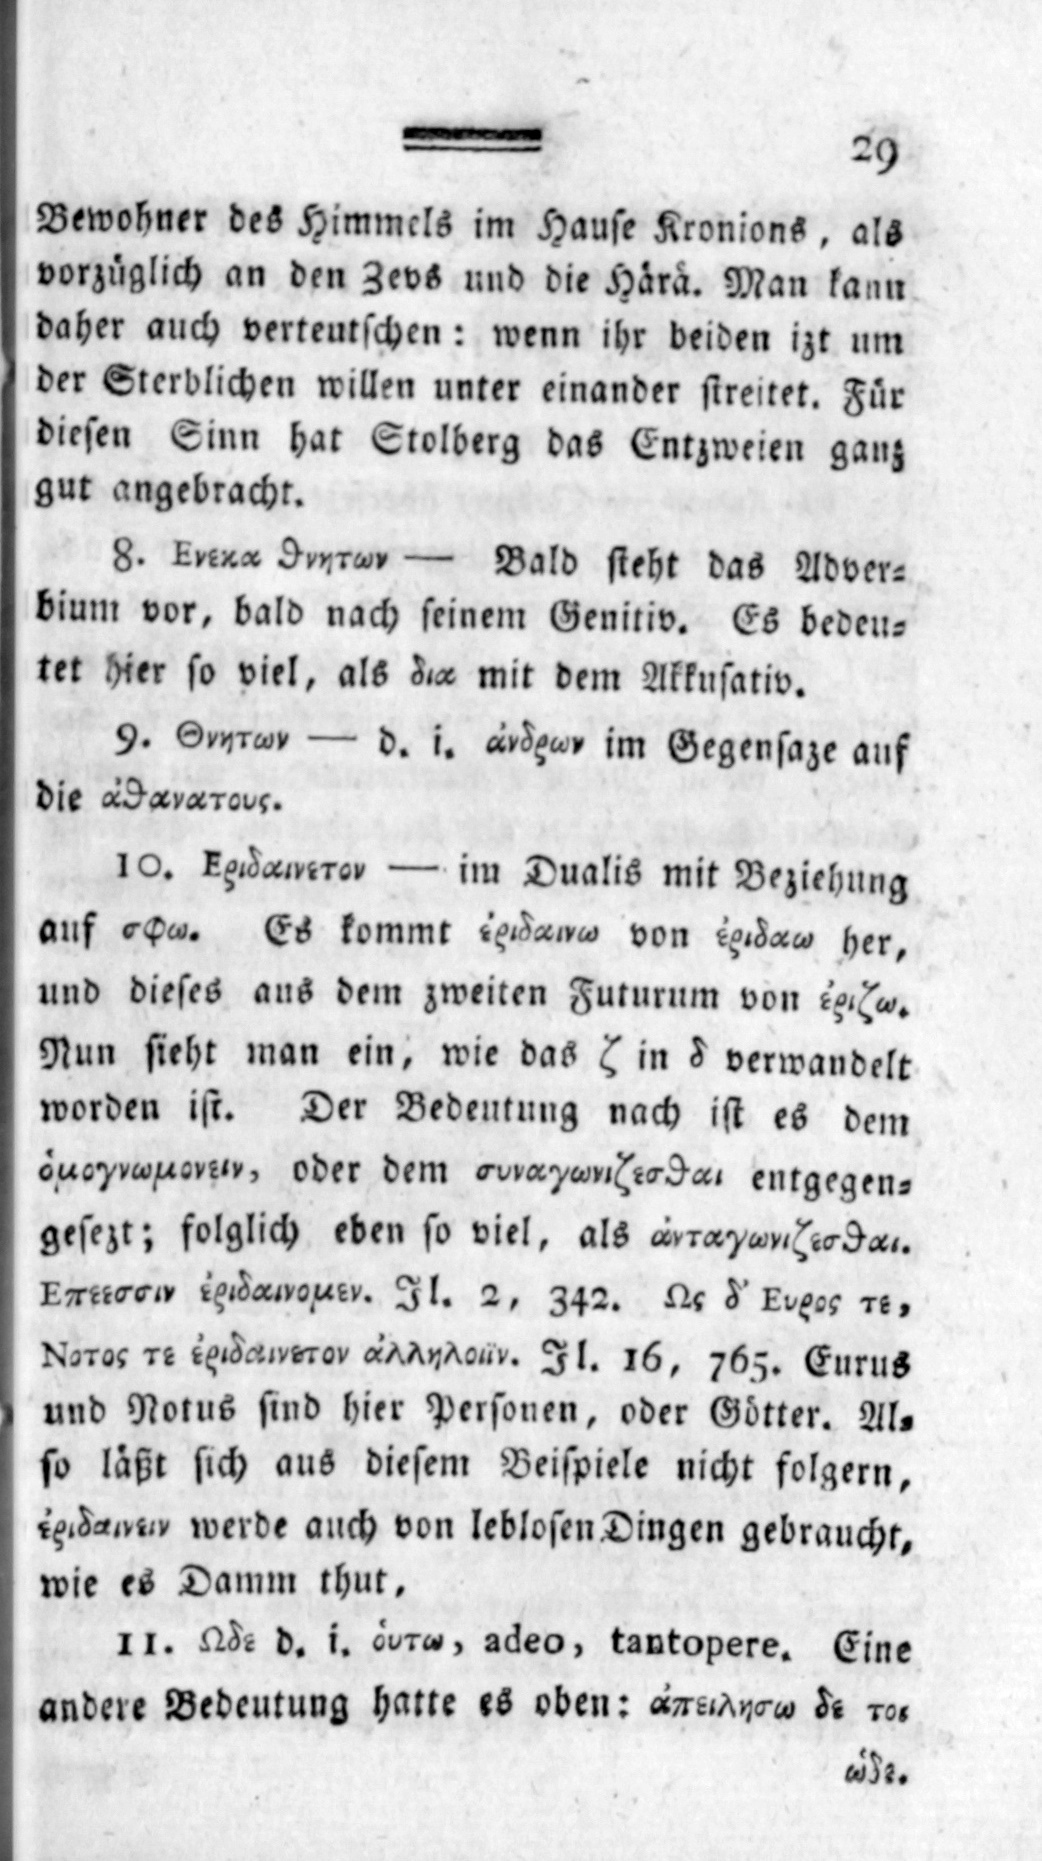 29
Bewohner des Himmels im Hause Kronions, als
vorzüglich an den Zevs und die Härä. Man kann
daher auch verteutschen: wenn ihr beiden izt um
der Sterblichen willen unter einander streitet. Für
diesen Sinn hat Stolberg das Entzweien ganz
gut angebracht.
8. Ενεκα θνητων — Bald steht das Adver-
bium vor, bald nach seinem Genitiv. Es bedeu-
tet hier so viel, als δια mit dem Akkusativ.
9. Θνητων — d. i. ἀνδρων im Gegensaze auf
die ἀθανατους.
10. Εριδαινετον — im Dualis mit Beziehung
auf σφω. Es kommt ἐριδαινω von ἐριδαω her,
und dieses aus dem zweiten Futurum von ἐριζω.
Nun sieht man ein, wie das ζ in δ verwandelt
worden ist. Der Bedeutung nach ist es dem
ὁμογνωμονειν, oder dem συναγωνιζεσθαι entgegen-
gesezt; folglich eben so viel, als ἀνταγωνιζεσθαι.
Επεεσσιν ἐριδαινομεν. Jl. 2, 342. Ως δ' Ευρος τε,
Νοτος τε ἐριδαινετον ἀλληλοιϊν. Jl. 16, 765. Eurus
und Notus sind hier Personen, oder Götter. Al-
so läßt sich aus diesem Beispiele nicht folgern,
ἐριδαινειν werde auch von leblosen Dingen gebraucht,
wie es Damm thut.
11. Ωδε d. i. ὁυτω, adeo, tantopere. Eine
andere Bedeutung hatte es oben: ἀπειλησω δε τοι
ὡδε.